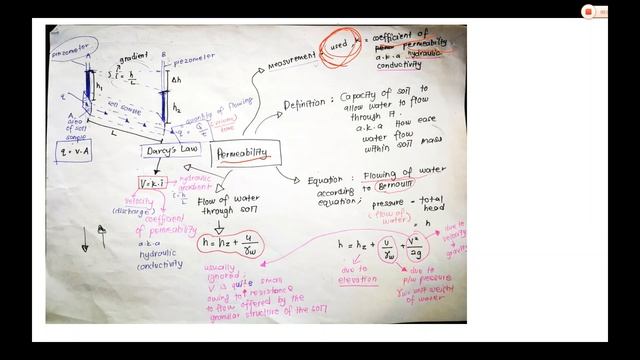 piezometer
A
B
gradient
piezometer
i = h/L
Δh
h₁
h₂
soil sample
q
A
area
of soil
sample
L
quantity of flowing
q = Q/t (volume/time)
q = v.A
Darcy's Law
Permeability
Measurement: used, k = coefficient of
permeability
a.k.a hydraulic
conductivity
Definition : Capacity of soil to
allow water to flow
through it.
a.k.a How ease
water flow
within soil mass
Equation : Flowing of water
according to Bernoulli
equation;
pressure = total
(flow of head
water) = h
V = k.i
hydraulic
gradient
i = h/L
velocity
(discharge)
coefficient
of permeability
a.k.a
hydraulic
conductivity
Flow of water
through soil
h = hz + u/γw
usually
ignored,
V is quite small
owing to resistance
to flow offered by the
granular structure of the soil
h = hz + u/γw + v²/2g
due to
velocity
+
gravity
due to
elevation
due to
p/w pressure
γw = unit weight
of water